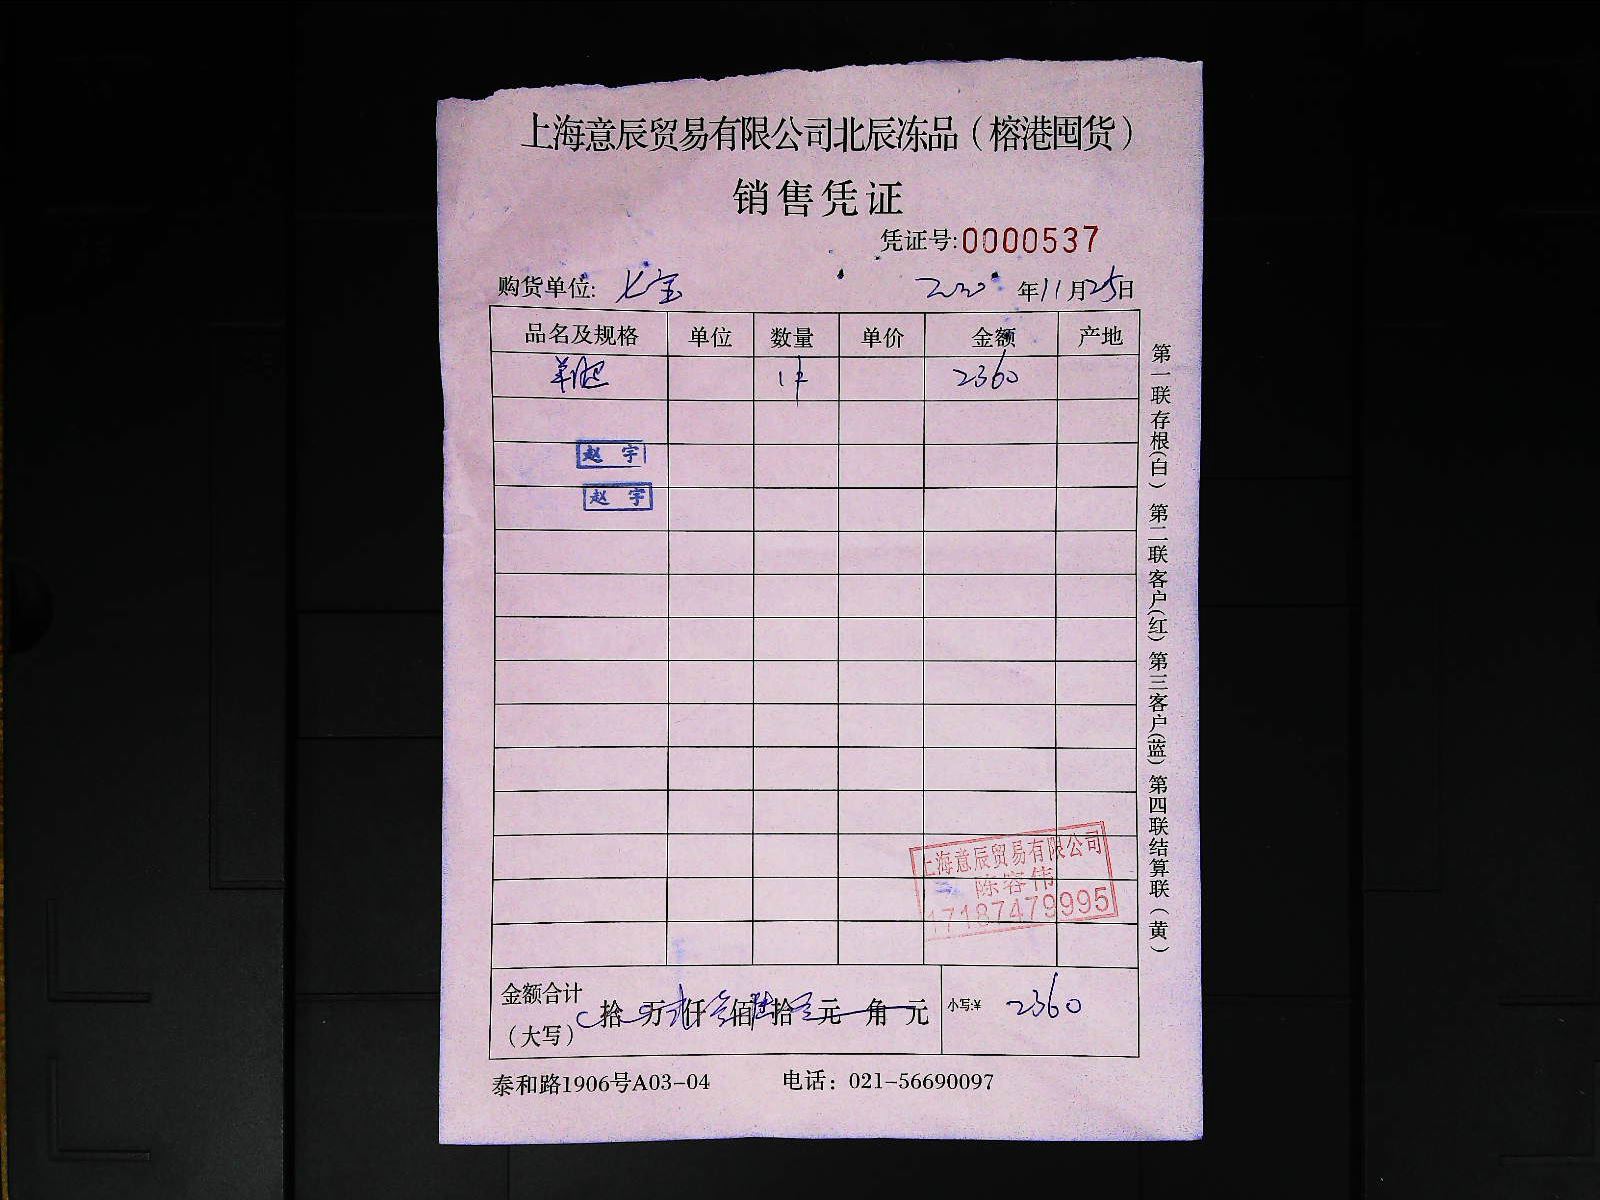 上海意辰贸易有限公司北辰冻品（榕港囤货）
销售凭证
凭证号:0000537
购货单位: 七宝 2020 年11月25日
品名及规格 单位 数量 单价 金额 产地
羊腿 1件 2360
赵 宇
赵 宇
上海意辰贸易有限公司
陈容伟
17187479995
金额合计（大写） 拾 万 贰仟 叁佰 陆拾 元 角 元 小写:¥ 2360
泰和路1906号A03-04 电话：021-56690097
第一联存根(白) 第二联客户(红) 第三客户(蓝) 第四联结算联（黄）